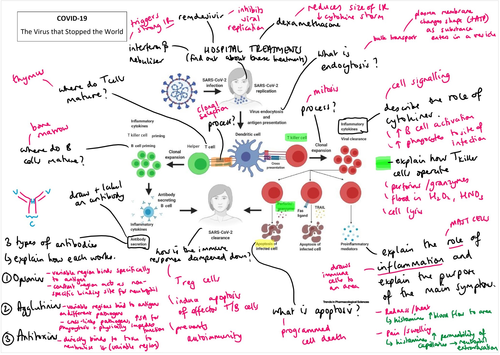 COVID-19
The Virus that Stopped the World
triggers strong IR
remdesivir
inhibits viral replication
dexamethasone
reduces size of IR
↓ cytokine storm
plasma membrane changes shape (↓ATP) as substance enters in a vesicle
bulk transport
interferon β nebuliser
HOSPITAL TREATMENTS
(find out about these treatments)
what is endocytosis?
thymus
where do T cells mature?
SARS-CoV-2 infection
SARS-CoV-2 replication
Virus endocytosis and antigen presentation
cell signalling
clonal selection
process?
mitosis
process?
Inflammatory cytokines
Viral clearance
describe the role of cytokines
↑ B cell activation
↑ phagocytes to site of infection
bone marrow
where do B cells mature?
Inflammatory cytokines
T killer cell priming
B cell priming
Helper T cell
Dendritic cell
T killer cell
Clonal expansion
Cross presentation
Clonal expansion
explain how T killer cells operate
perforins/granzymes
flood in H₂O₂, HNO₃
cell lysis
draw + label an antibody
Clonal expansion
Antibody secreting B cell
Fas ligand
TRAIL
V
C
Inflammatory cytokines
Antibody secretion
SARS-CoV-2 clearance
Apoptosis of infected cell
Apoptosis of infected cell
Proinflammatory mediators
MAST CELLS
3 types of antibodies
↳ explain how each works.
how is the immune response dampened down?
draws immune cells to an area
explain the role of inflammation and explain the purpose of the main symptoms.
Trends in Pharmacological Sciences
① Opsonins
- variable region binds specifically to antigen
- constant region acts as non-specific binding site for neutrophil
T reg cells
induce apoptosis of effector T/B cells
prevents autoimmunity
what is apoptosis?
programmed cell death
② Agglutinins
- variable regions bind to antigens on different pathogens
③ Antitoxins
- directly binds to toxin to neutralise it (variable region)
Redness/heat
↳ histamines ↑ blood flow to area
Pain/swelling
↳ histamines ↑ permeability of capillaries → neutrophil extravasation